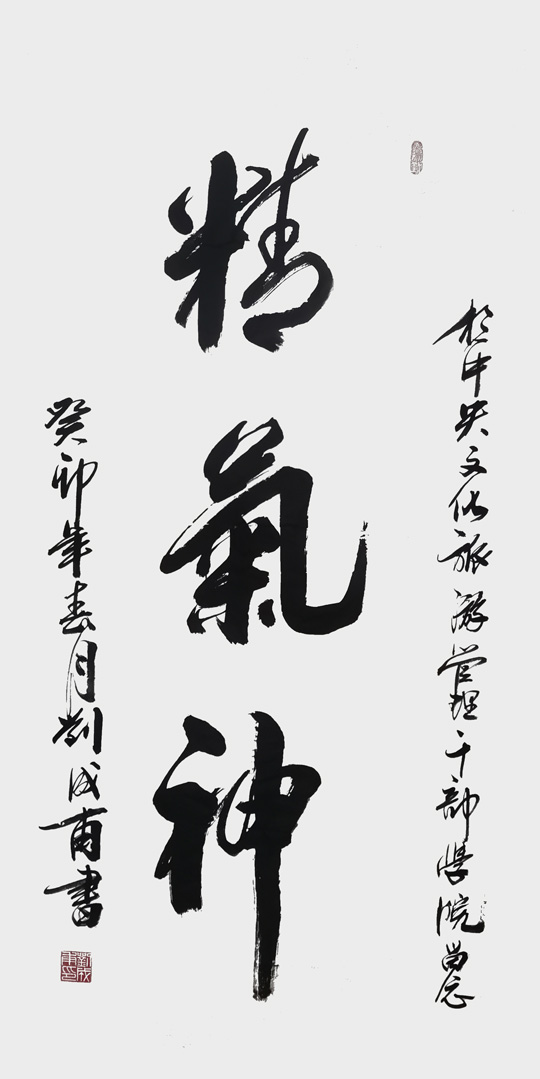 於中央文化旅游管理干部學院留念
精氣神
癸卯年春月劉成甫書